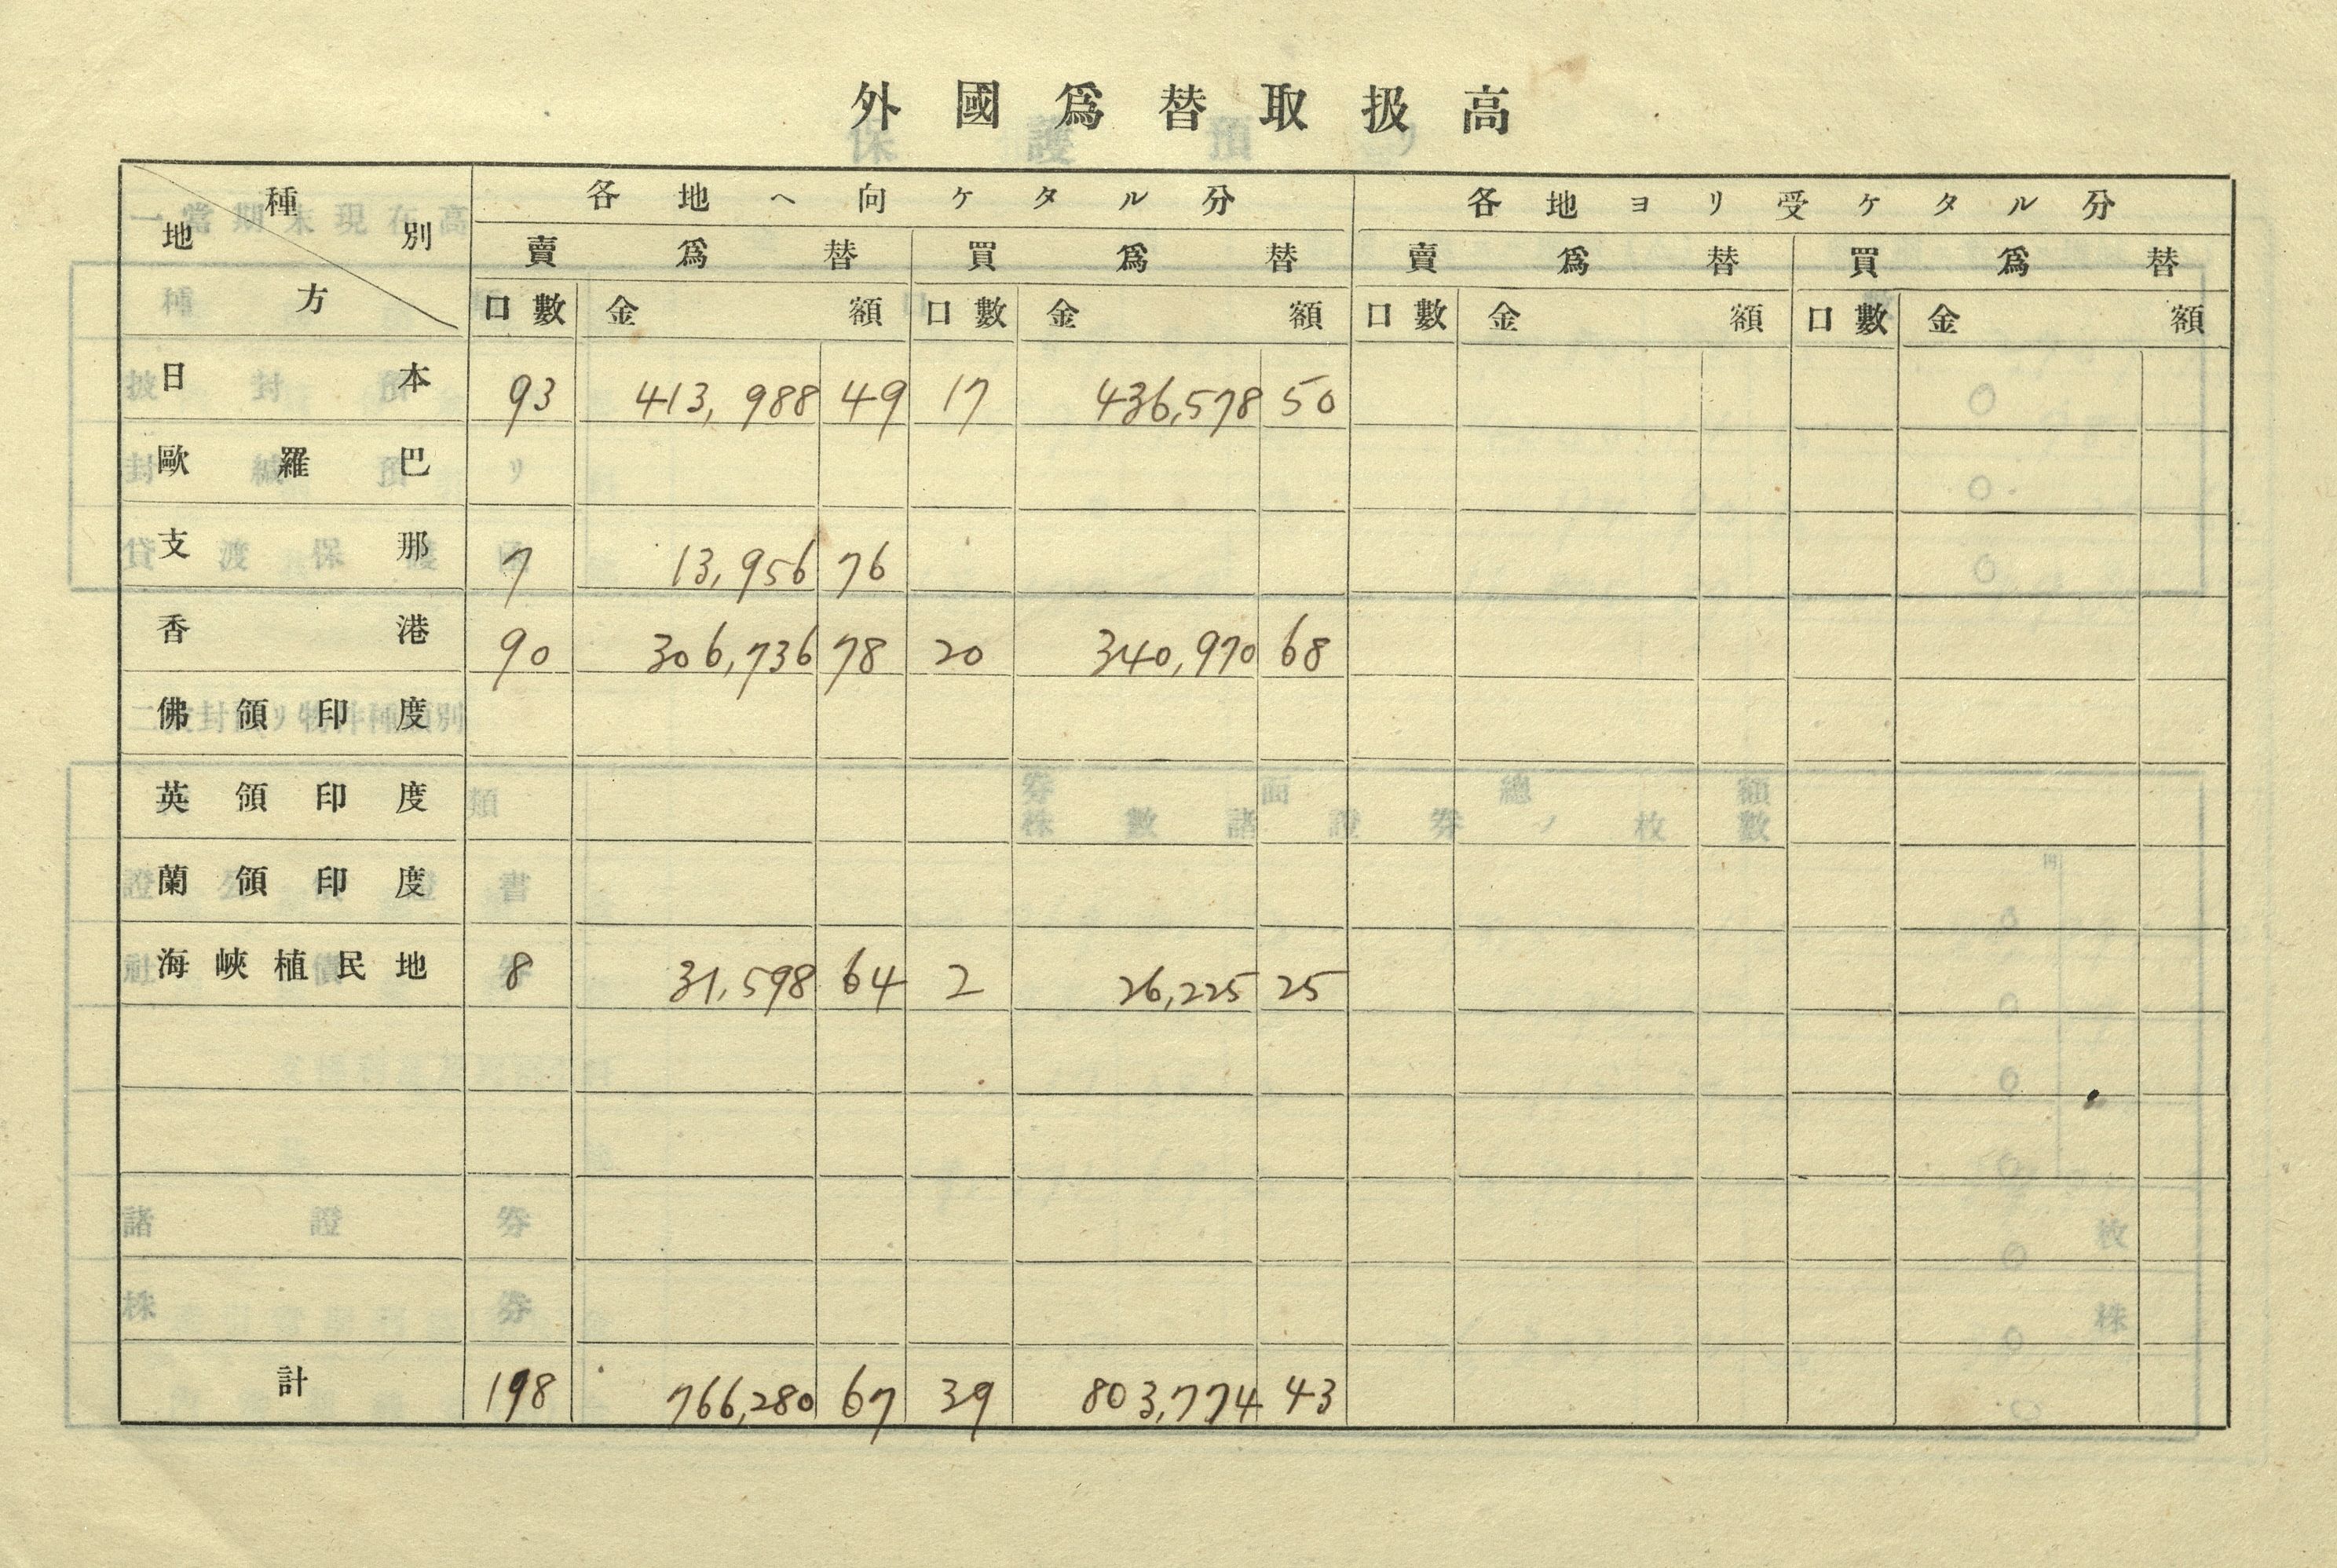 外國爲替取扱高
種別 地方 各地ヘ向ケタル分 各地ヨリ受ケタル分
賣爲替 買爲替 賣爲替 買爲替
口數 金額 口數 金額 口數 金額 口數 金額
日本 93 413,988 49 17 436,578 50
歐羅巴
支那 7 13,956 76
香港 90 306,736 78 20 340,970 68
佛領印度
英領印度
蘭領印度
海峽植民地 8 31,598 64 2 26,225 25
計 198 766,280 67 39 803,774 43